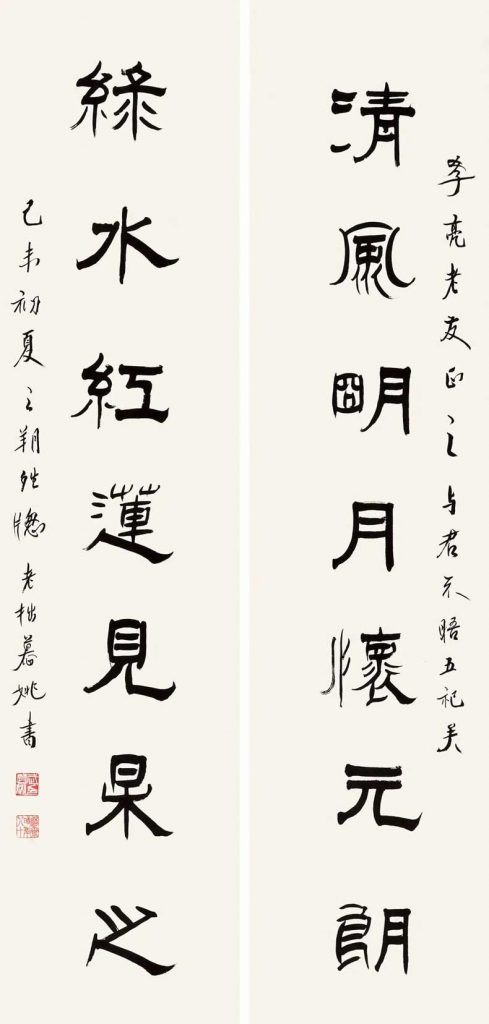 季亮老友正之与君不晤五祀矣
清風朙月懷元朗
綠水紅蓮見杲之
己未初夏之朔老拙慕姚書